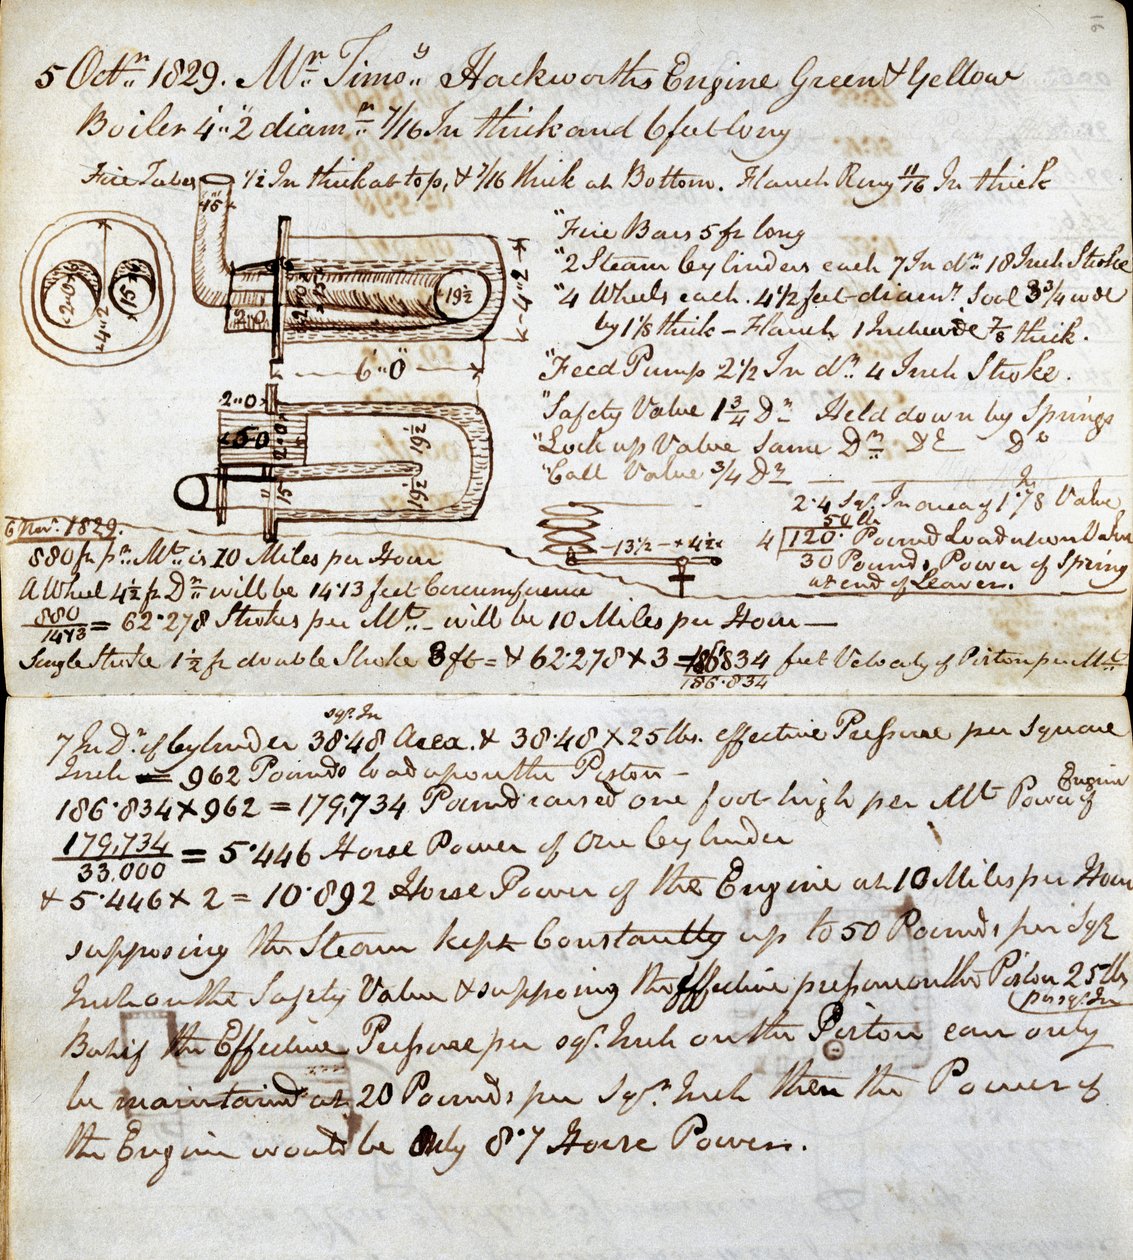 5 Octr. 1829. Mr. Timoy. Hackworths Engine Green & Yellow
Boiler 4"2 diamr. 7/16 In thick and 6 feet long
Fire Tubes 1/2 In thick at top, & 7/16 thick at Bottom. Flanch Ring 11/16 In thick
15"
"Fire Bars 5 ft long
"2 Steam Cylinders each 7 In dr. 18 Inch Stroke
"4 Wheels each. 4 1/2 feet diamr. Sool 3 3/4 wde
by 1 1/8 thick – Flanch 1 Inch wide 7/8 thick.
"Feed Pump 2 1/2 In dr. 4 Inch Stroke.
"Safety Valve 1 3/4 Dr. Held down by Springs
"Lock up Valve same Dr. Do Do
"Call Valve 3/4 Dr.
15 2/4
4"2
2"0
2"0
19 1/2
4"2
6"0"
2"0
5"0
2"0
15"
19 1/2
19 1/2
2.4 Sqr. In area of 1.78 In Valve
50 lb
4 | 120. Pounds Load upon Valve
30 Pounds, Power of Spring
at end of Leaver.
13 1/2 – × 4 1/2
6 Novr. 1829.
880 ft pr. Mt. is 10 Miles per Hour
A Wheel 4 1/2 ft Dr. will be 14.13 feet Circumference
880/14.13 = 62.278 Strokes per Mt. – will be 10 Miles per Hour —
Single Stroke 1 1/2 ft double Stroke 3 ft = & 62.278 × 3 = 186.834 feet Velocity of Piston per Mt.
186.834
7 In Dr. of Cylinder 38.48 sqr. In Area. & 38.48 × 25 lbs. effective Pressure per Square
Inch = 962 Pounds load upon the Piston –
186.834 × 962 = 179,734 Pounds raised one foot high per Mt Power of Engine
179,734/33.000 = 5.446 Horse Power of One Cylinder
& 5.446 × 2 = 10.892 Horse Power of the Engine at 10 Miles per Hour
supposing the Steam kept Constantly up to 50 Pounds per Sqr
Inch on the Safety Valve & supposing the Effective pressure on the Piston 25 lbs
per sqr. In
But if the Effective Pressure per sqr. Inch on the Piston can only
be maintaind at 20 Pounds per Sqr. Inch then the Power of
the Engine would be Only 8.7 Horse Power.